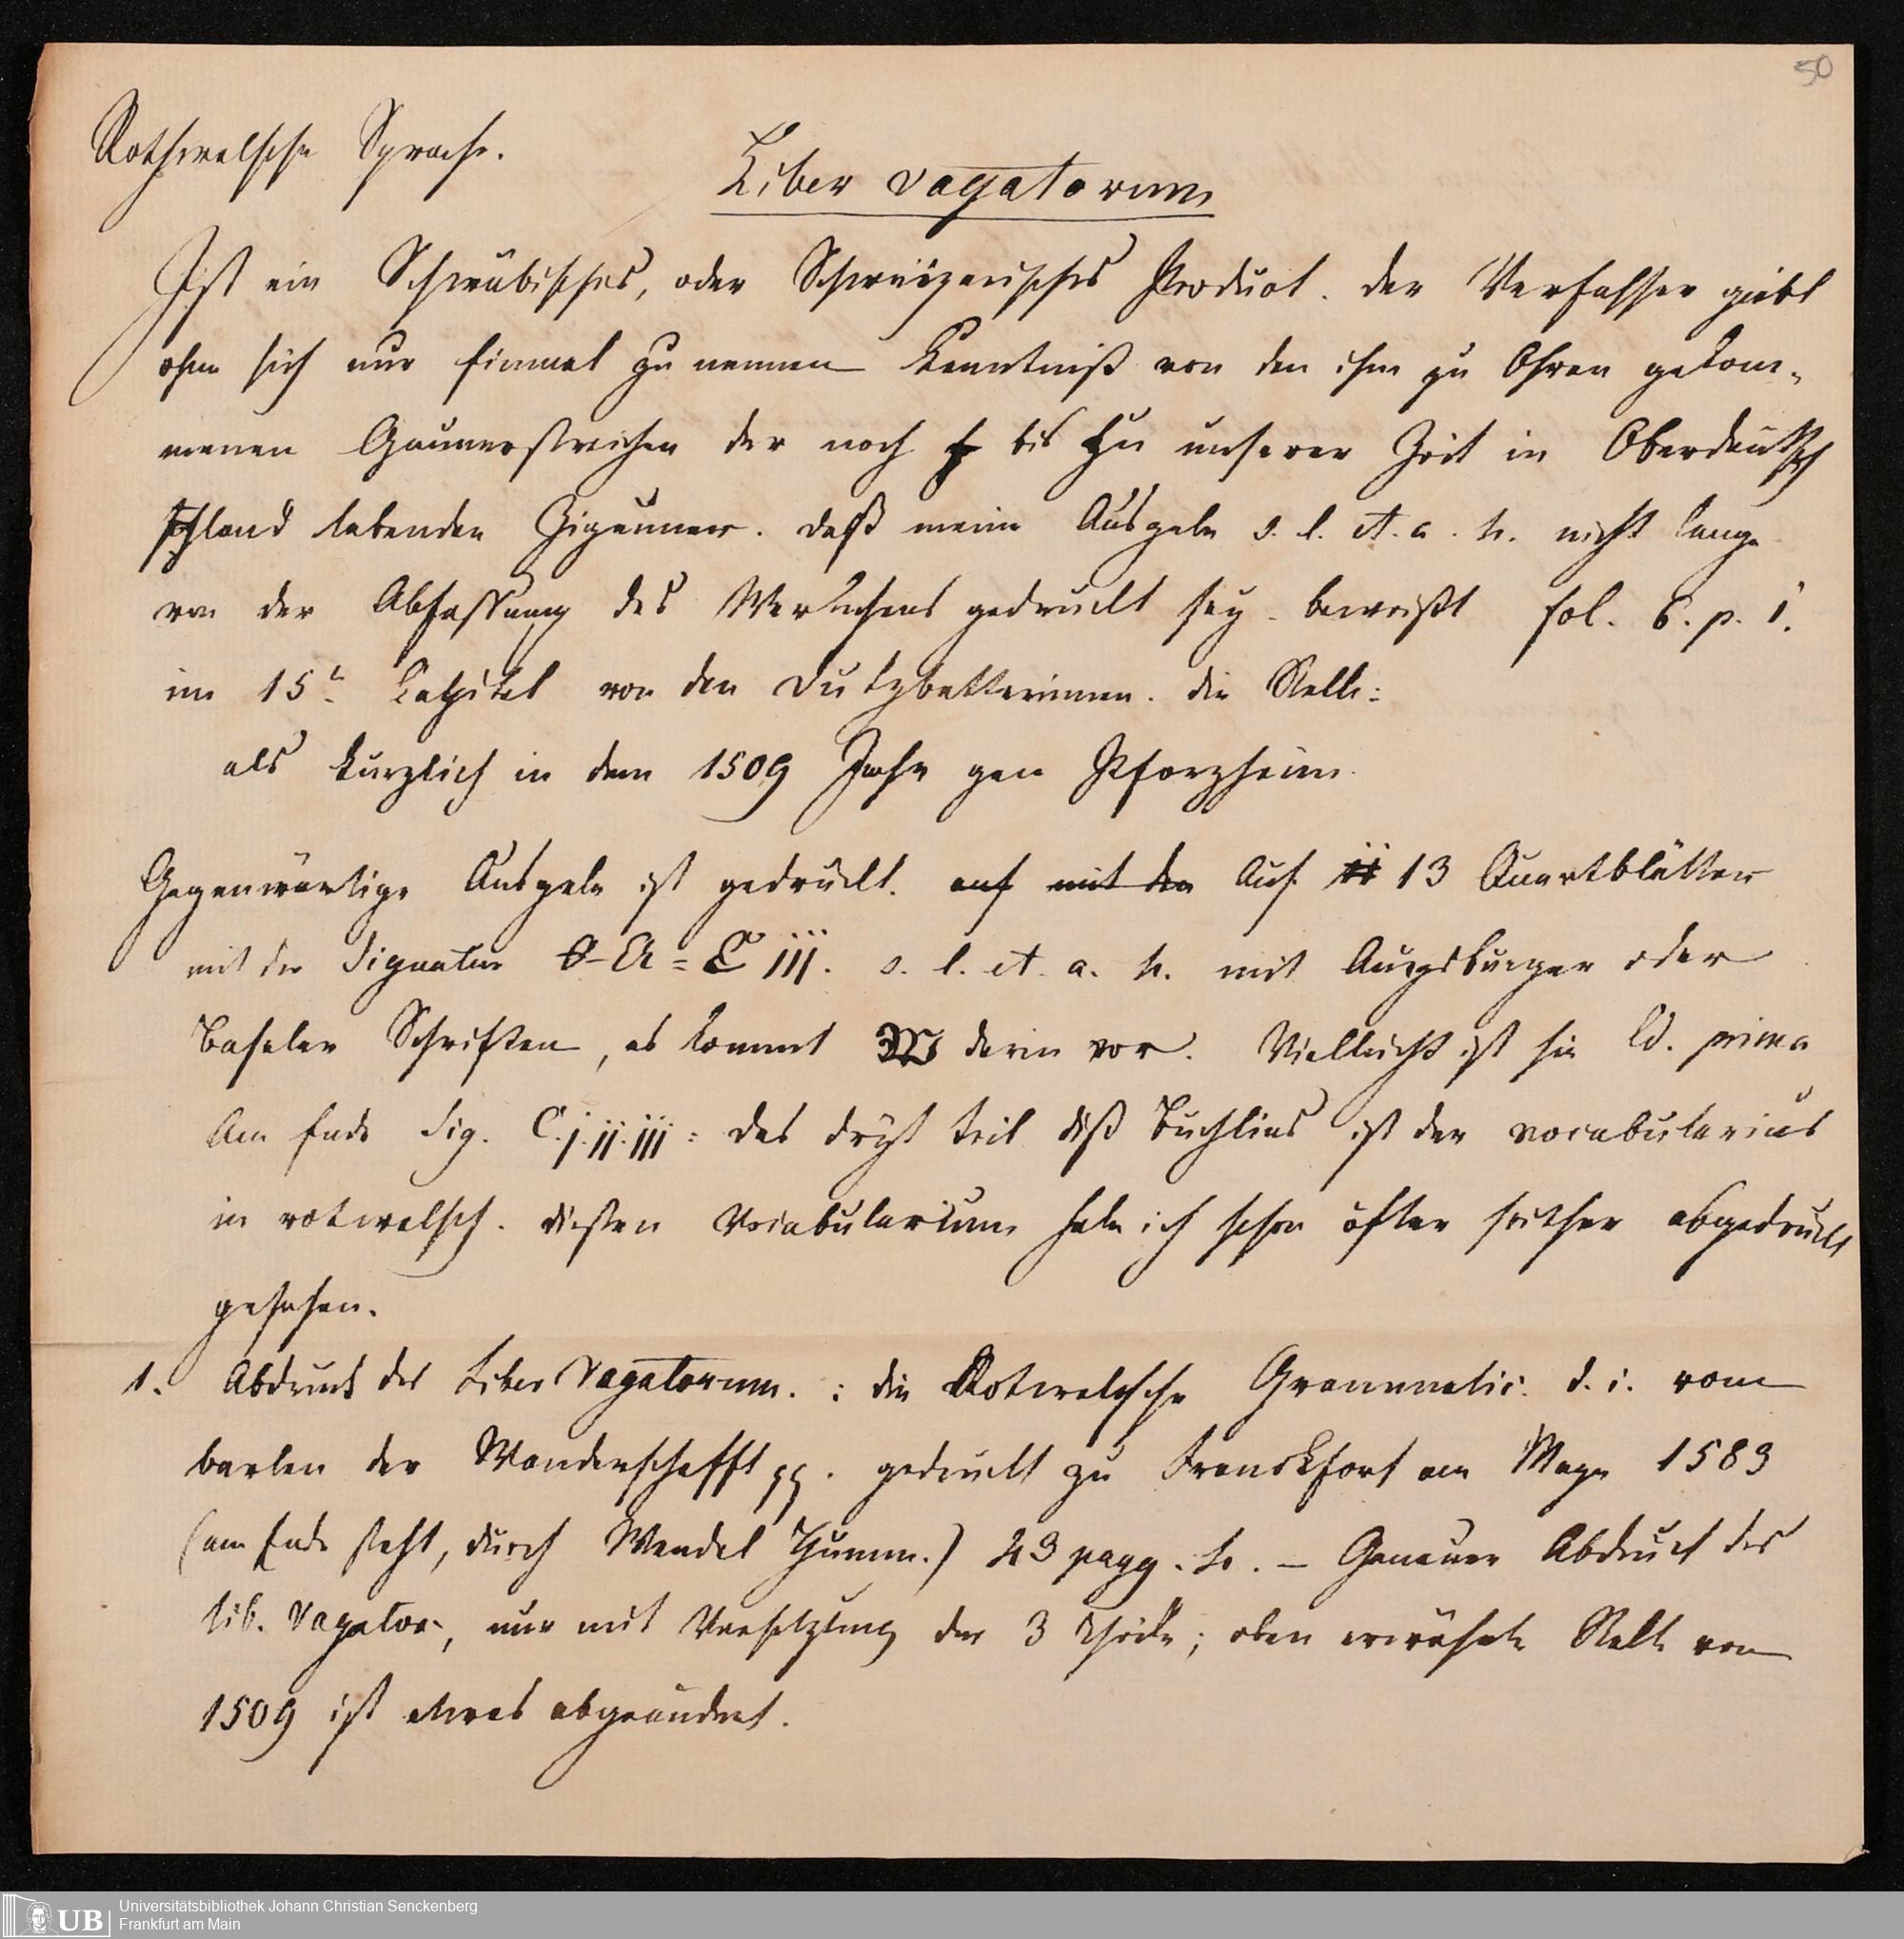 50
Rothwelsche Sprache.
Liber vagatorum
Ist ein Schwäbisches, oder Schweizerisches Product. der Verfasser giebt
ohne sich nur einmal zu nennen Kenntniß von den ihm zu Ohren gekom-
menen Gaunerstreichen der noch bis zu unserer Zeit in Oberdeutsch
land lebenden Zigeuner. daß meine Ausgabe s. l. et. a. 4. nicht lange
von der Abfassung des Werkchens gedruckt sey beweißt fol. 6. p. 1.
im 15t. Capitel von den Dutzbetterinnen. die Stelle:
als kurzlich in dem 1509 Jahr gen Pforzheim.
Gegenwärtige Ausgabe ist gedruckt. auf mit den Auf 11 13 Quartblätter
mit der Signatur A = C iij. s. l. et. a. 4. mit Augsburger oder
Baseler Schriften, es kommt W darin vor. Vielleicht ist sie Ed. prima
Am Ende Sig. C. j. ij. iij: das dryt teil diß Buchlins ist der vocabularius
in rotwelsch. diesen Vocabularium habe ich schon öfter seither abgedruckt
gesehen.
1. Abdruck des Liber Vagatorum. : die Rotwelsche Grammatic. d. i. vom
barlen der Wanderschafft pp. gedruckt zu Franckfort am Mayn 1583
(am Ende steht, durch Wendel Humm.) 43 pagg. 4. – Genauer Abdruck des
lib. Vagator, nur mit Versetzung der 3 Theile; oben erwähnte Stelle von
1509 ist etwas abgeändert.
UB
Universitätsbibliothek Johann Christian Senckenberg
Frankfurt am Main